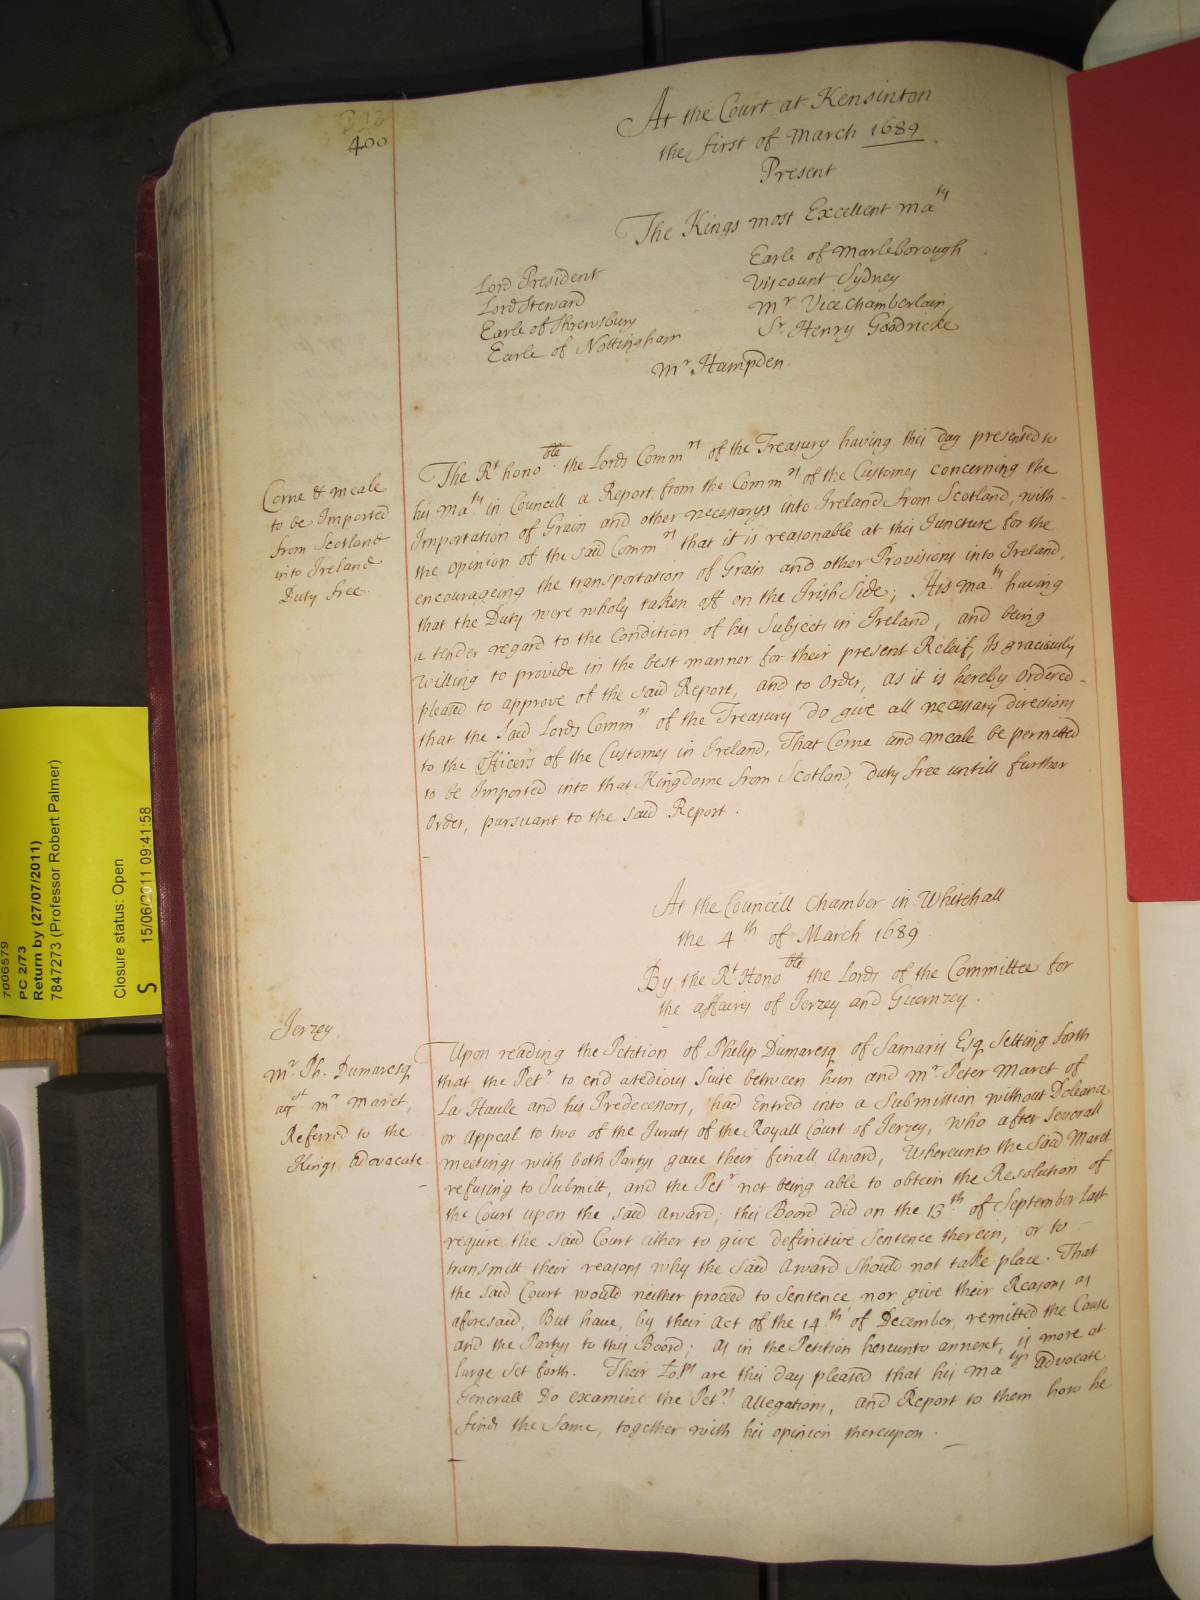 400
At the Court at Kensinton
the first of March 1689
Present
The Kings most Excellent Ma^ty
Lord President
Lord Steward
Earle of Shrewsbury
Earle of Nottingham
Earle of Marleborough
Viscount Sydney
Mr. Vice Chamberlain
Sr. Henry Goodricke
Mr. Hampden.
Corne & meale
to be Imported
from Scotland
into Ireland
Duty free.
The Rt. hono^ble the Lords Comm^rs of the Treasury having this day presented to
his Ma^ty in Councill a Report from the Comm^rs of the Customes concerning the
Importation of Grain and other necessarys into Ireland from Scotland, with-
the opinion of the said Comm^rs that it is reasonable at this Juncture for the
encourageing the transportation of Grain and other Provisions into Ireland,
that the Duty were wholy taken off on the Irish Side; His Ma^ty having
a tender regard to the Condition of his Subjects in Ireland, and being
willing to provide in the best manner for their present Releif, Is graciously
pleased to approve of the said Report, and to order, as it is hereby Ordered-
that the said Lords Comm^rs of the Treasury do give all necessary directions
to the Officers of the Customes in Ireland, That Corne and Meale be permitted
to be Imported into that Kingdome from Scotland, duty free untill further
Order, pursuant to the said Report.
At the Councill Chamber in Whitehall
the 4^th of March 1689
By the Rt. Hono^ble the Lords of the Committee for
the affaires of Jerzey and Guernzey.
Jerzey
Mr. Ph. Dumaresq
ag^st Mr. Maret,
Referred to the
Kings Advocate
Upon reading the Petition of Philip Dumaresq of Samaris Esq setting forth
that the Pet^r to end a tedious Suite between him and Mr. Peter Maret of
La Haule and his Predecessors, had Entred into a Submission without Doleance
or Appeal to two of the Jurats of the Royall Court of Jerzey, who after severall
meetings with both Partys gave their finall Award, Whereunto the said Maret
refusing to Submitt, and the Pet^r not being able to obtein the Resolution of
the Court upon the said Award; this Board did on the 13^th of September last
require the said Court either to give definitive Sentence therein, or to
transmitt their reasons why the said Award should not take place. That
the said Court would neither proceed to Sentence nor give their Reasons as
aforesaid, But have, by their Act of the 14^th of December, remitted the Cause
and the Partys to this Board; as in the Petition hereunto annext, is more at
large set forth. Their Lo^ps are this day pleased that his Ma^tys Advocate
Generall Do examine the Pet^rs Allegations, and Report to them how he
finds the Same, together with his opinion thereupon.
7006579
PC 2/73
Return by (27/07/2011)
7847273 (Professor Robert Palmer)
Closure status: Open
S 15/06/2011 09:41:58